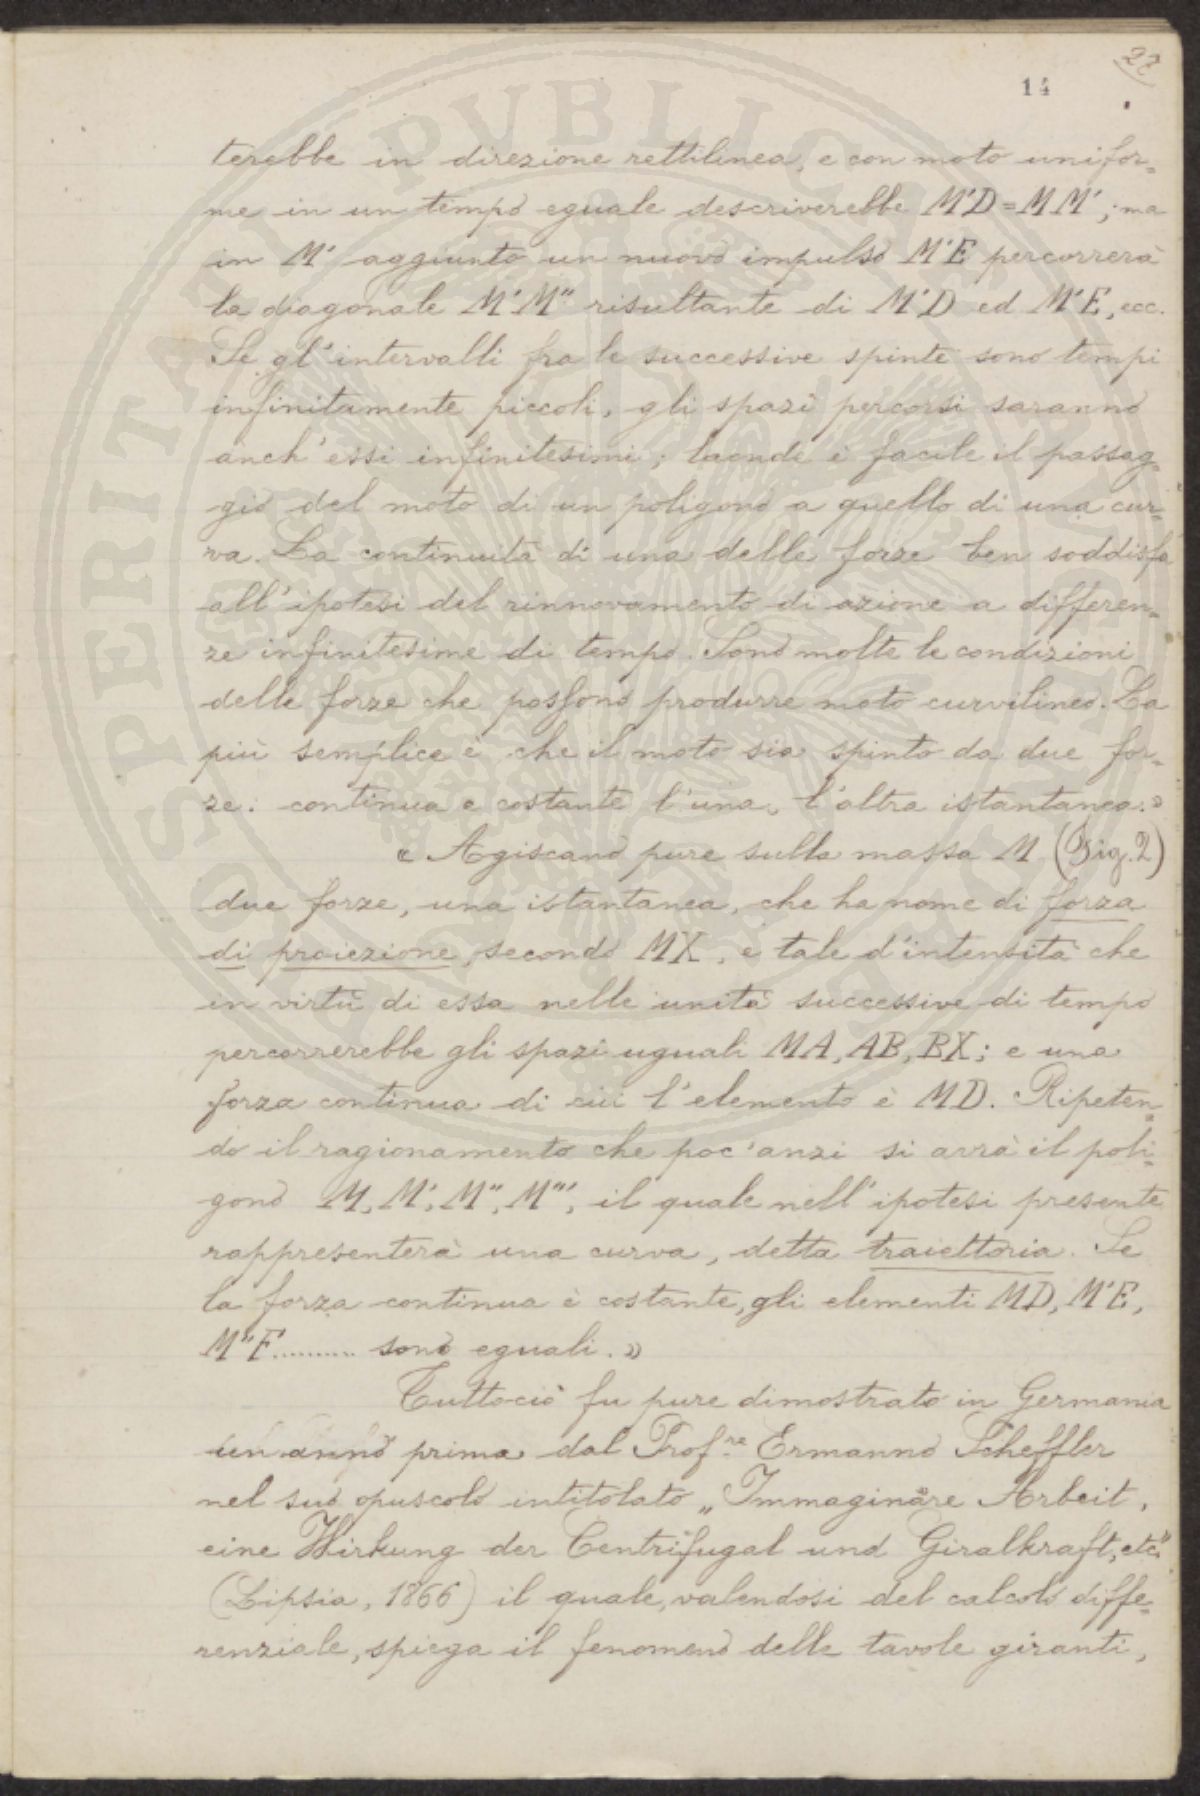 22
14
terebbe in direzione rettilinea, e con moto unifor=
me in un tempo eguale descriverebbe M'D=MM'; ma
in M' aggiunto un nuovo impulso M'E percorrerà
la diagonale M'M" risultante di M'D ed M'E, ecc.
Se gl'intervalli fra le successive spinte sono tempi
infinitamente piccoli, gli spazî percorsi saranno
anch'essi infinitesimi; laonde è facile il passag=
gio del moto di un poligono a quello di una cur=
va. La continuità di una delle forze ben soddisfa
all'ipotesi del rinnovamento di azione a differen=
ze infinitesime di tempo. Sono molte le condizioni
delle forze che possono produrre moto curvilineo. La
più semplice è che il moto sia spinto da due for=
ze: continua e costante l'una, l'altra istantanea.»
« Agiscano pure sulla massa M (Fig. 2)
due forze, una istantanea, che ha nome di forza
di proiezione, secondo MX, è tale d'intensità che
in virtù di essa nelle unità successive di tempo
percorrerebbe gli spazi uguali MA, AB, BX; e una
forza continua di cui l'elemento è MD. Ripeten=
do il ragionamento che poc'anzi si avrà il poli=
gono M, M', M", M"', il quale nell'ipotesi presente
rappresenterà una curva, detta traiettoria. Se
la forza continua è costante, gli elementi MD, M'E,
M"F.......... sono eguali.»
Tuttociò fu pure dimostrato in Germania
un anno prima dal Prof.re Ermanno Scheffler
nel suo opuscolo intitolato „Immaginäre Arbeit,
eine Wirkung der Centrifugal und Giralkraft, etc."
(Lipsia, 1866) il quale, valendosi del calcolo diffe=
renziale, spiega il fenomeno delle tavole giranti,
PROSPERITATI PUBLICAE